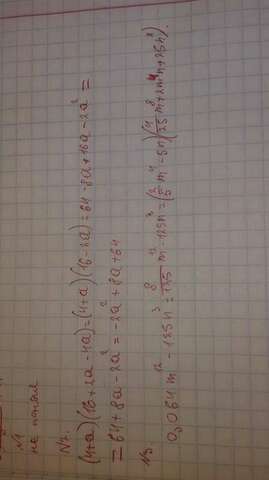 N1
не понял
N2.
(4+a)(16+2a-4a)=(4+a)(16-2a)=64-8a+16a-2a²=
=64+8a-2a²=-2a²+8a+64
N3
0,064m¹²-125n³=8/125 m¹²-125n³=(2/5 m⁴-5n)(4/25 m⁸+2m⁴n+25n²).